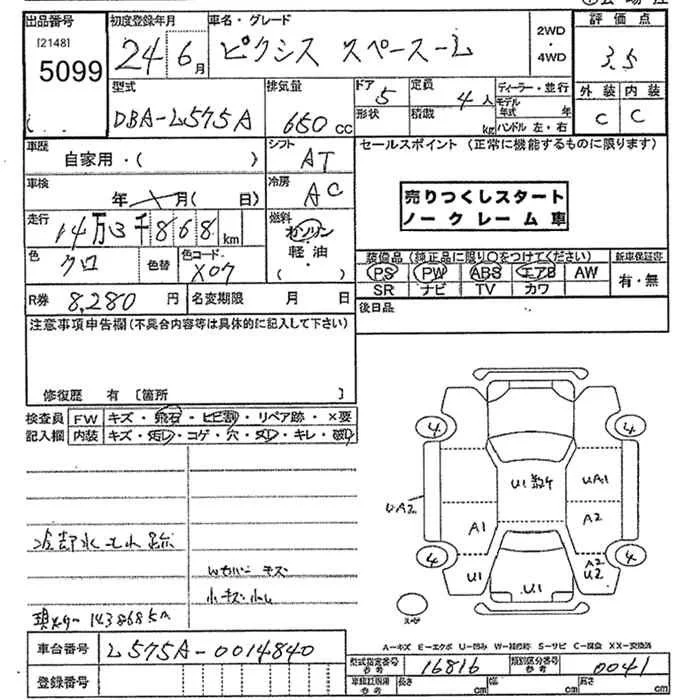 出品番号 初度登録年月 車名・グレード 評価点
[2148]
5099 24 6月 ピクシス スペース-L 2WD ・ 4WD 3.5
型式 排気量 ドア 5 定員 4人 ディーラー・並行 外装 内装
DBA-L575A 650cc 形状 積載 kg モデル年式 年 ハンドル 左・右 C C
車歴 自家用・( ) シフト AT セールスポイント (正常に機能するものに限ります)
車検 年 月( 日) 冷房 AC
売りつくしスタート
ノークレーム車
走行 14万3千868km 燃料 ガソリン
軽・油
( )
色 クロ 色替 色コード X07
装備品 (純正品に限り○をつけてください) 新車保証書
PS PW ABS エアB AW 有・無
SR ナビ TV カワ
R券 8,280円 名変期限 月 日 後日品
注意事項申告欄(不具合内容等は具体的に記入して下さい)
修復歴 有 [箇所 ]
検査員 FW キズ・飛石・ヒビ割・リペア跡・×要
記入欄 内装 キズ・汚レ・コゲ・穴・スレ・キレ・破レ
4 4
U1 UA1
UA2
A1 A2
4 4
U1 A2
U2
U1
冷却水モレ跡
キズ
小キズ
143868km
A-キズ E-エクボ U-凹み W-補修跡 S-サビ C-腐食 XX-交換済
車台番号 L575A-0014840 型式指定番号 参考 16816 類別区分番号 参考 0041
登録番号 車検証記載 参考 長さ cm 幅 cm 高さ cm